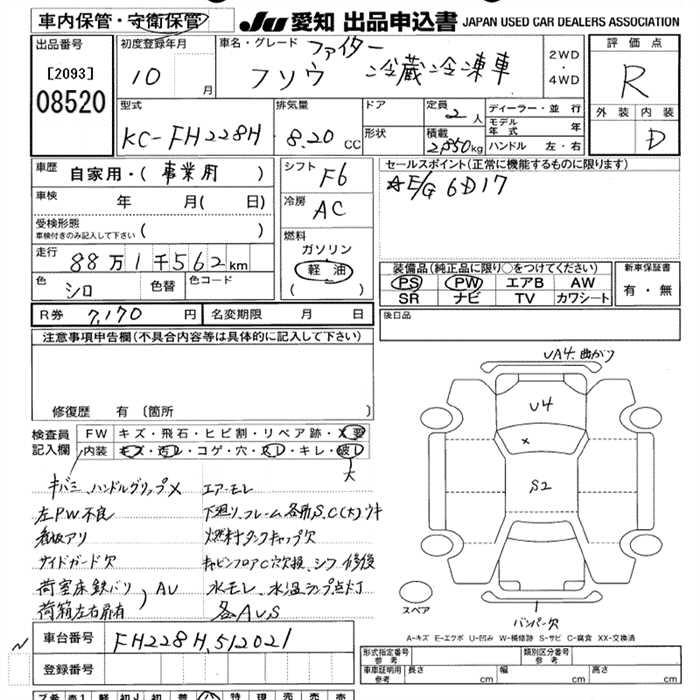 車内保管・守衛保管
JU 愛知 出品申込書 JAPAN USED CAR DEALERS ASSOCIATION
出品番号
[2093]
08520
初度登録年月
10 月
車名・グレード
ファイター
フソウ 冷蔵冷凍車
2WD
・
4WD
評価点
R
外装 内装
D
型式
KC-FH228H
排気量
8.20 CC
ドア
形状
定員
2 人
積載
2,850kg
ディーラー・並行
モデル年式 年
ハンドル 左・右
車歴
自家用・(事業用)
車検
年 月( 日)
受検形態
車検付きのみ記入して下さい ( )
走行
88万1千562km
色
シロ
色替
色コード
シフト
F6
冷房
AC
燃料
ガソリン
軽油
( )
セールスポイント(正常に機能するものに限ります)
☆E/G 6D17
装備品(純正品に限り○をつけてください)
PS PW エアB AW
SR ナビ TV カワシート
新車保証書
有・無
R券 7,170 円
名変期限 月 日
後日品
注意事項申告欄(不具合内容等は具体的に記入して下さい)
修復歴 有 〔箇所 〕
検査員記入欄
FW キズ・飛石・ヒビ割・リペア跡・X要
内装 キズ・汚レ・コゲ・穴・スレ・キレ・破レ
大
キバミ、ハンドルグリップX
エアーモレ
左PW不良
下廻リ、フレーム各所S、C(大)ウキ
看板アリ
燃料タンクキャップ欠
サイドガード欠
キャビンフロアC穴 シフ 修復
荷室床鉄バリ
荷箱左右扉有
AU
水モレ、水温ランプ点灯
各A、U、S
UA4、曲がり
U4
X
S2
スペア
バンパー欠
A-キズ E-エクボ U-凹み W-補修跡 S-サビ C-腐食 XX-交換済
車台番号
FH228H、512021
登録番号
形式指定番号
参考
類別区分番号
参考
車証証明用
参考
長さ cm
幅 cm
高さ cm